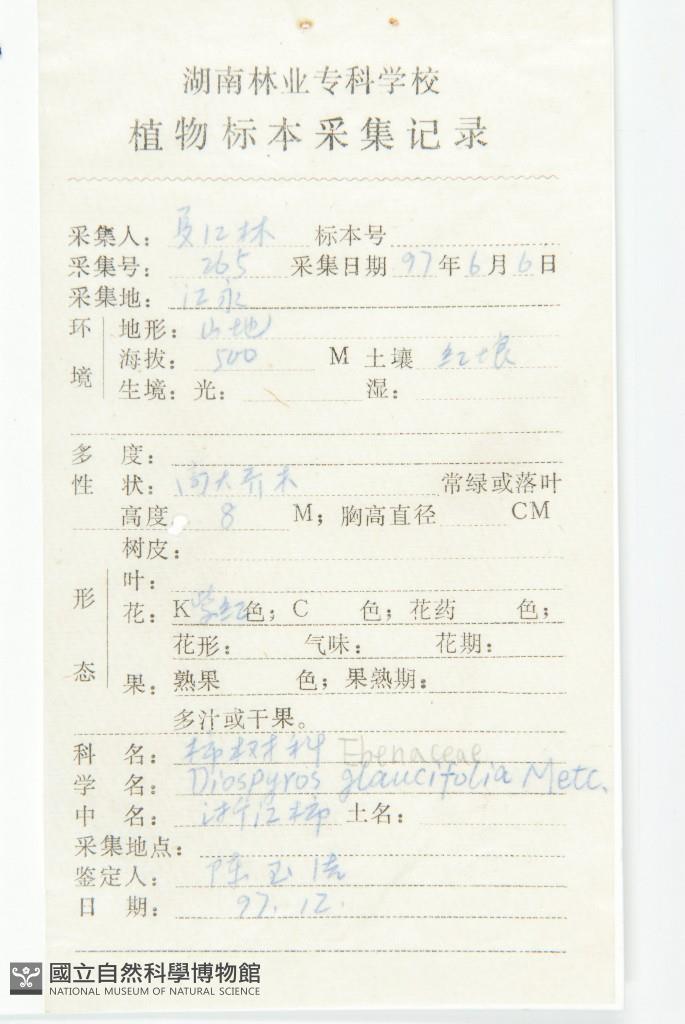 湖南林业专科学校
植物标本采集记录
采集人：夏江林 标本号
采集号：265 采集日期 97年6月6日
采集地：江永
环境 地形：山地
海拔：500 M 土壤 红壤
生境：光： 湿：
多度：
性状：高大乔木 常绿或落叶
高度 8 M；胸高直径 CM
树皮：
形态 叶：
花：K紫红色；C 色；花药 色；
花形： 气味： 花期：
果：熟果 色；果熟期：
多汁或干果。
科名：柿树科 Ebenaceae
学名：Diospyros glaucifolia Metc.
中名：浙江柿 土名：
采集地点：
鉴定人：陈
日期：97.12.
國立自然科學博物館
NATIONAL MUSEUM OF NATURAL SCIENCE